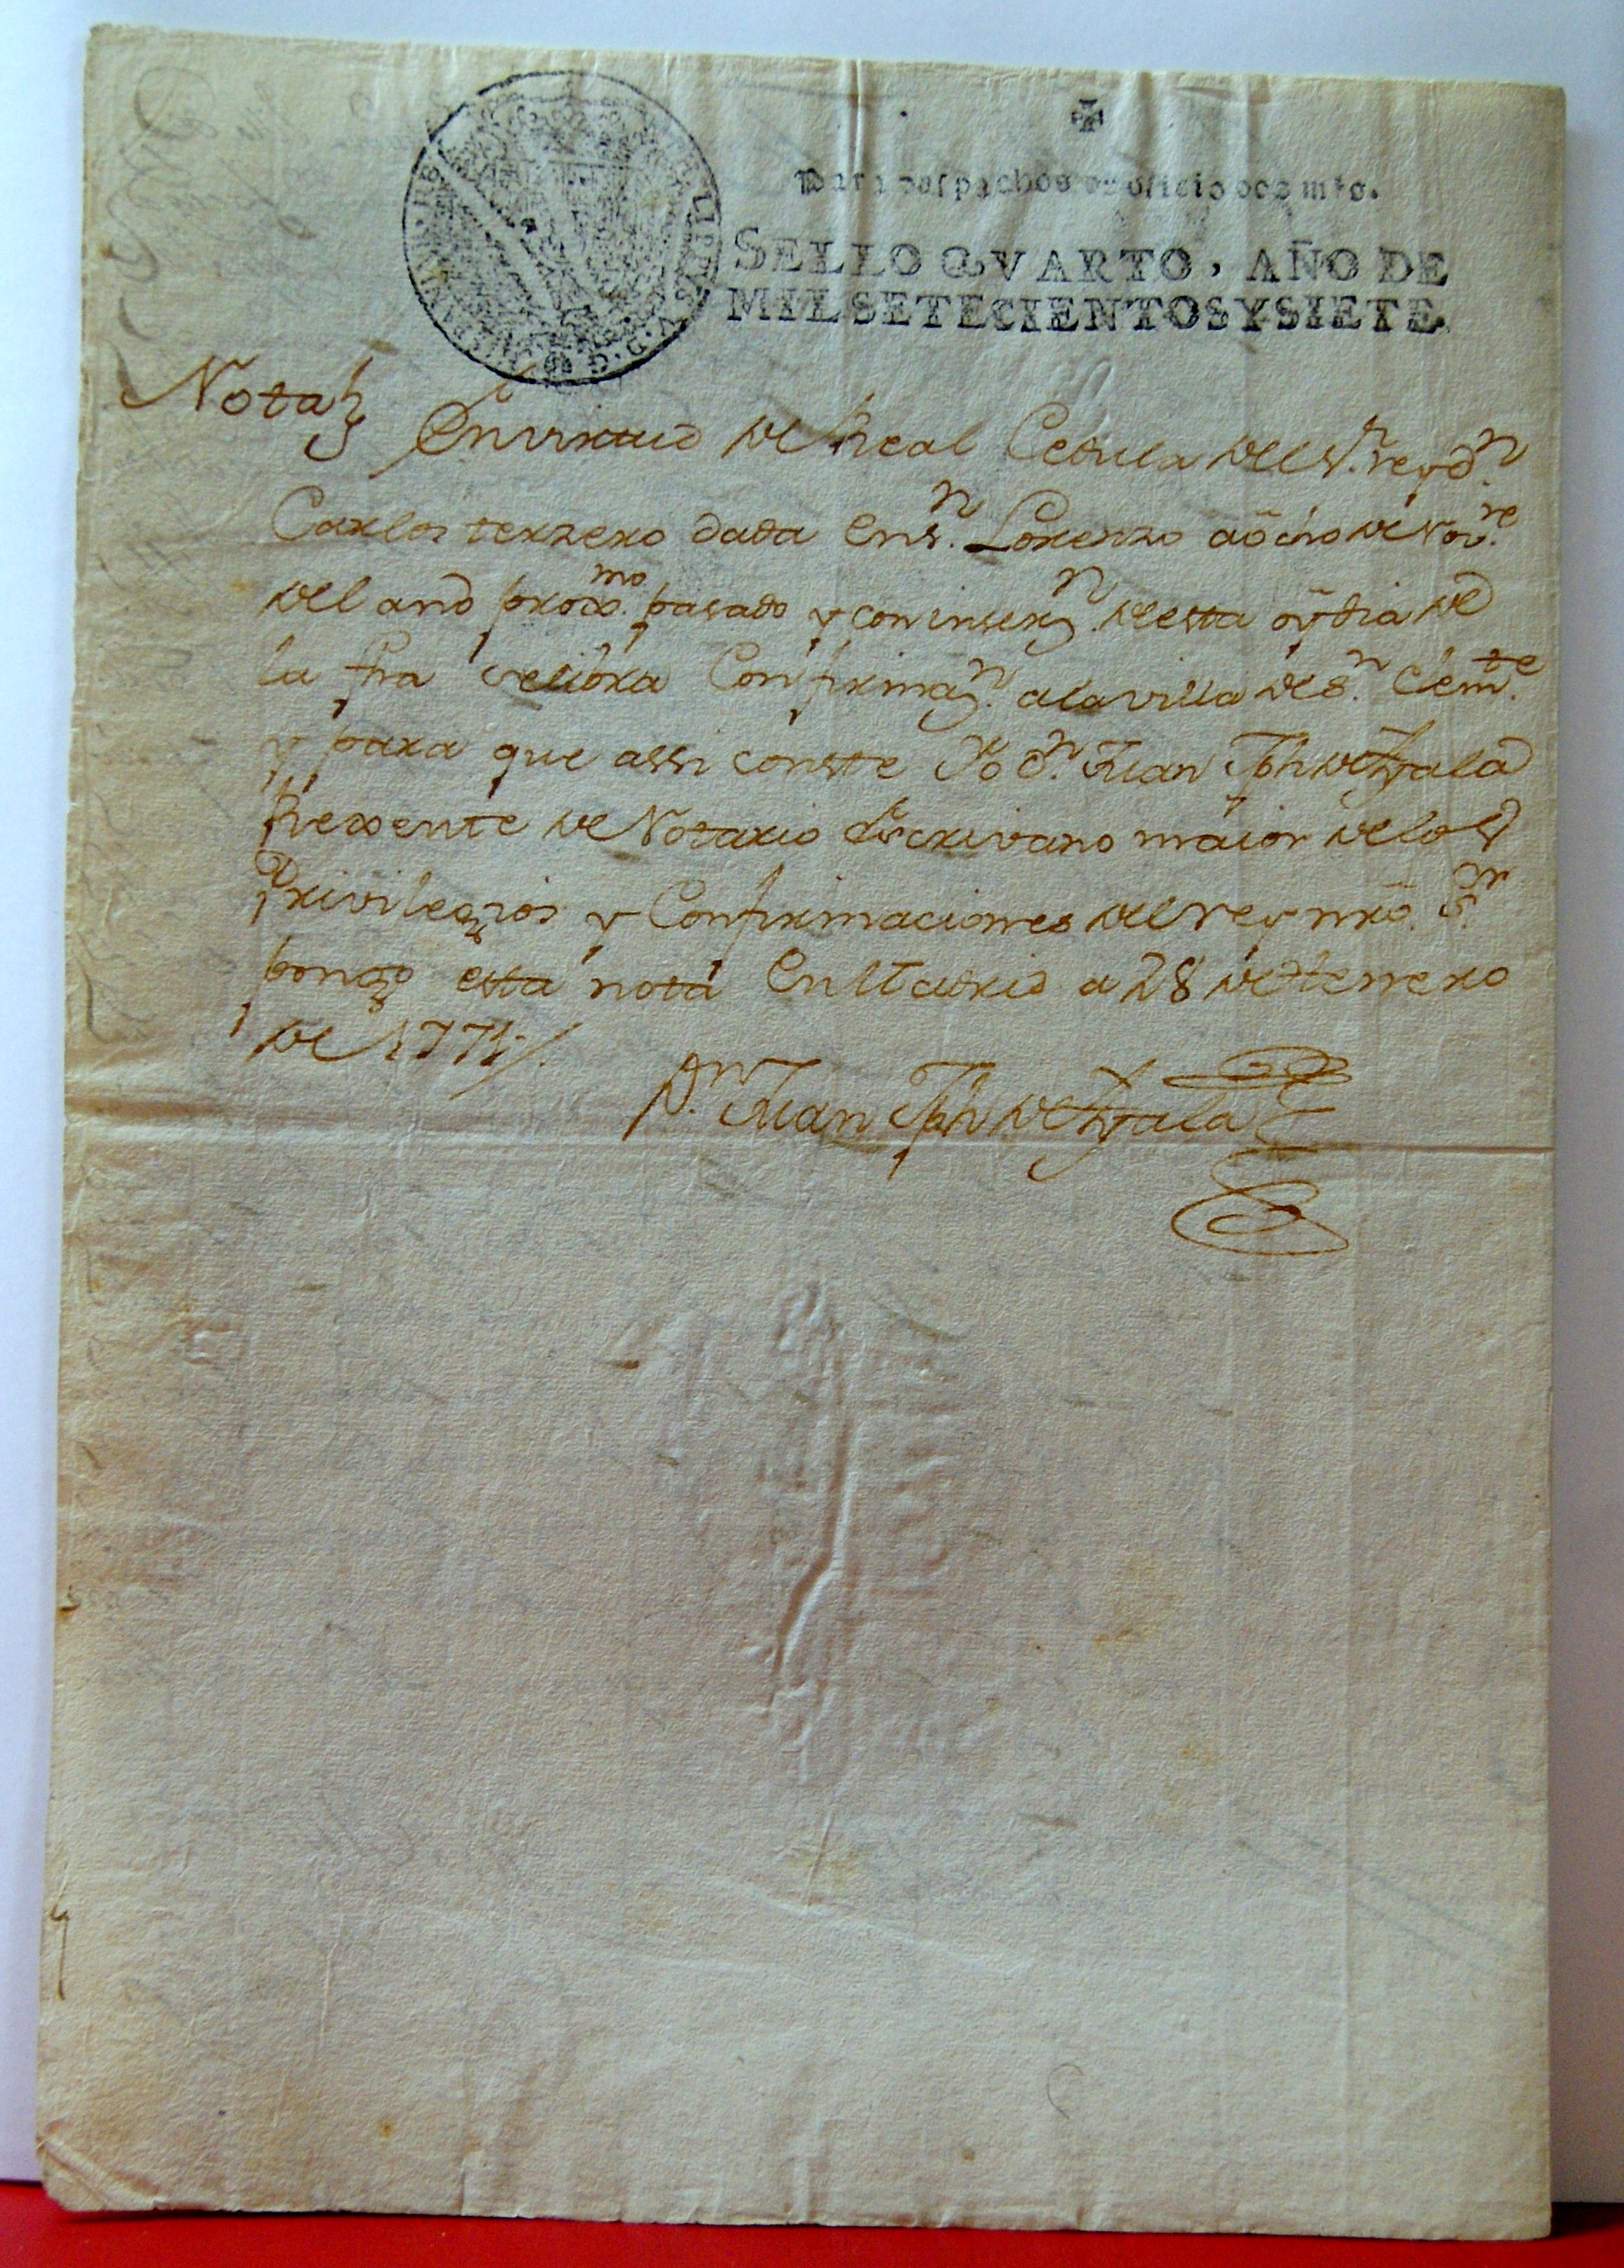 ✠
Para despachos de oficio dos mrs.
SELLO QVARTO, AÑO DE
MIL SETECIENTOS Y SIETE.
Nota
En virtud de Real Cedula del Sr. rey Dn.
Carlos terzero dada en Sn. Lorenzo a ocho de Nove.
del año proxmo. pasado y con inserzn. de esta oy dia de
la fha se libra Confirmazn. a la villa de Sn. Clemte.
y para que assi conste Yo Dn. Juan Jph de Ayala
Rexente de Notario Escrivano maior de los
Privilegios y Confirmaciones del rey nro. Sor.
pongo esta nota en Madrid a 28 de henero
de 1771.
Dn. Juan Jph de Ayala